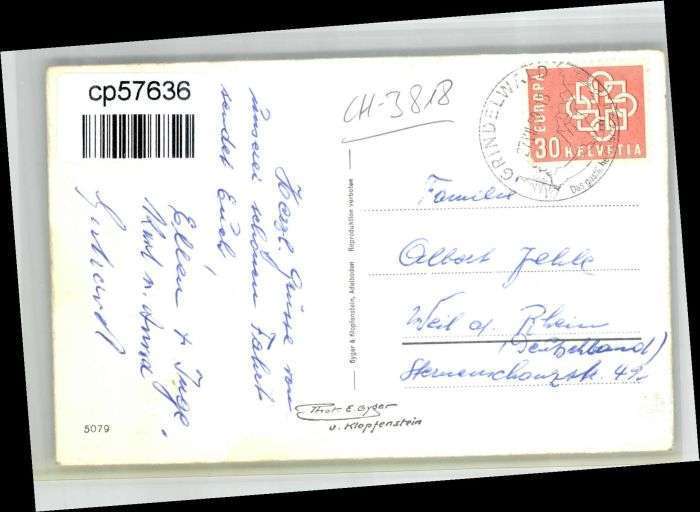 cp57636
CH-3818
GRINDELWALD
EUROPA
30 HELVETIA
Herzl. Grüsse von
unserer schönen Fahrt
sendet Euch
Ellen & Inge,
Kurt u. Anna
Familie
Albert Jehle
Weil a. Rhein
(Deutschland)
Sternenschanzstr. 49
Gyger & Klopfenstein, Adelboden Reproduktion verboten
Phot. E. Gyger
u. Klopfenstein
5079